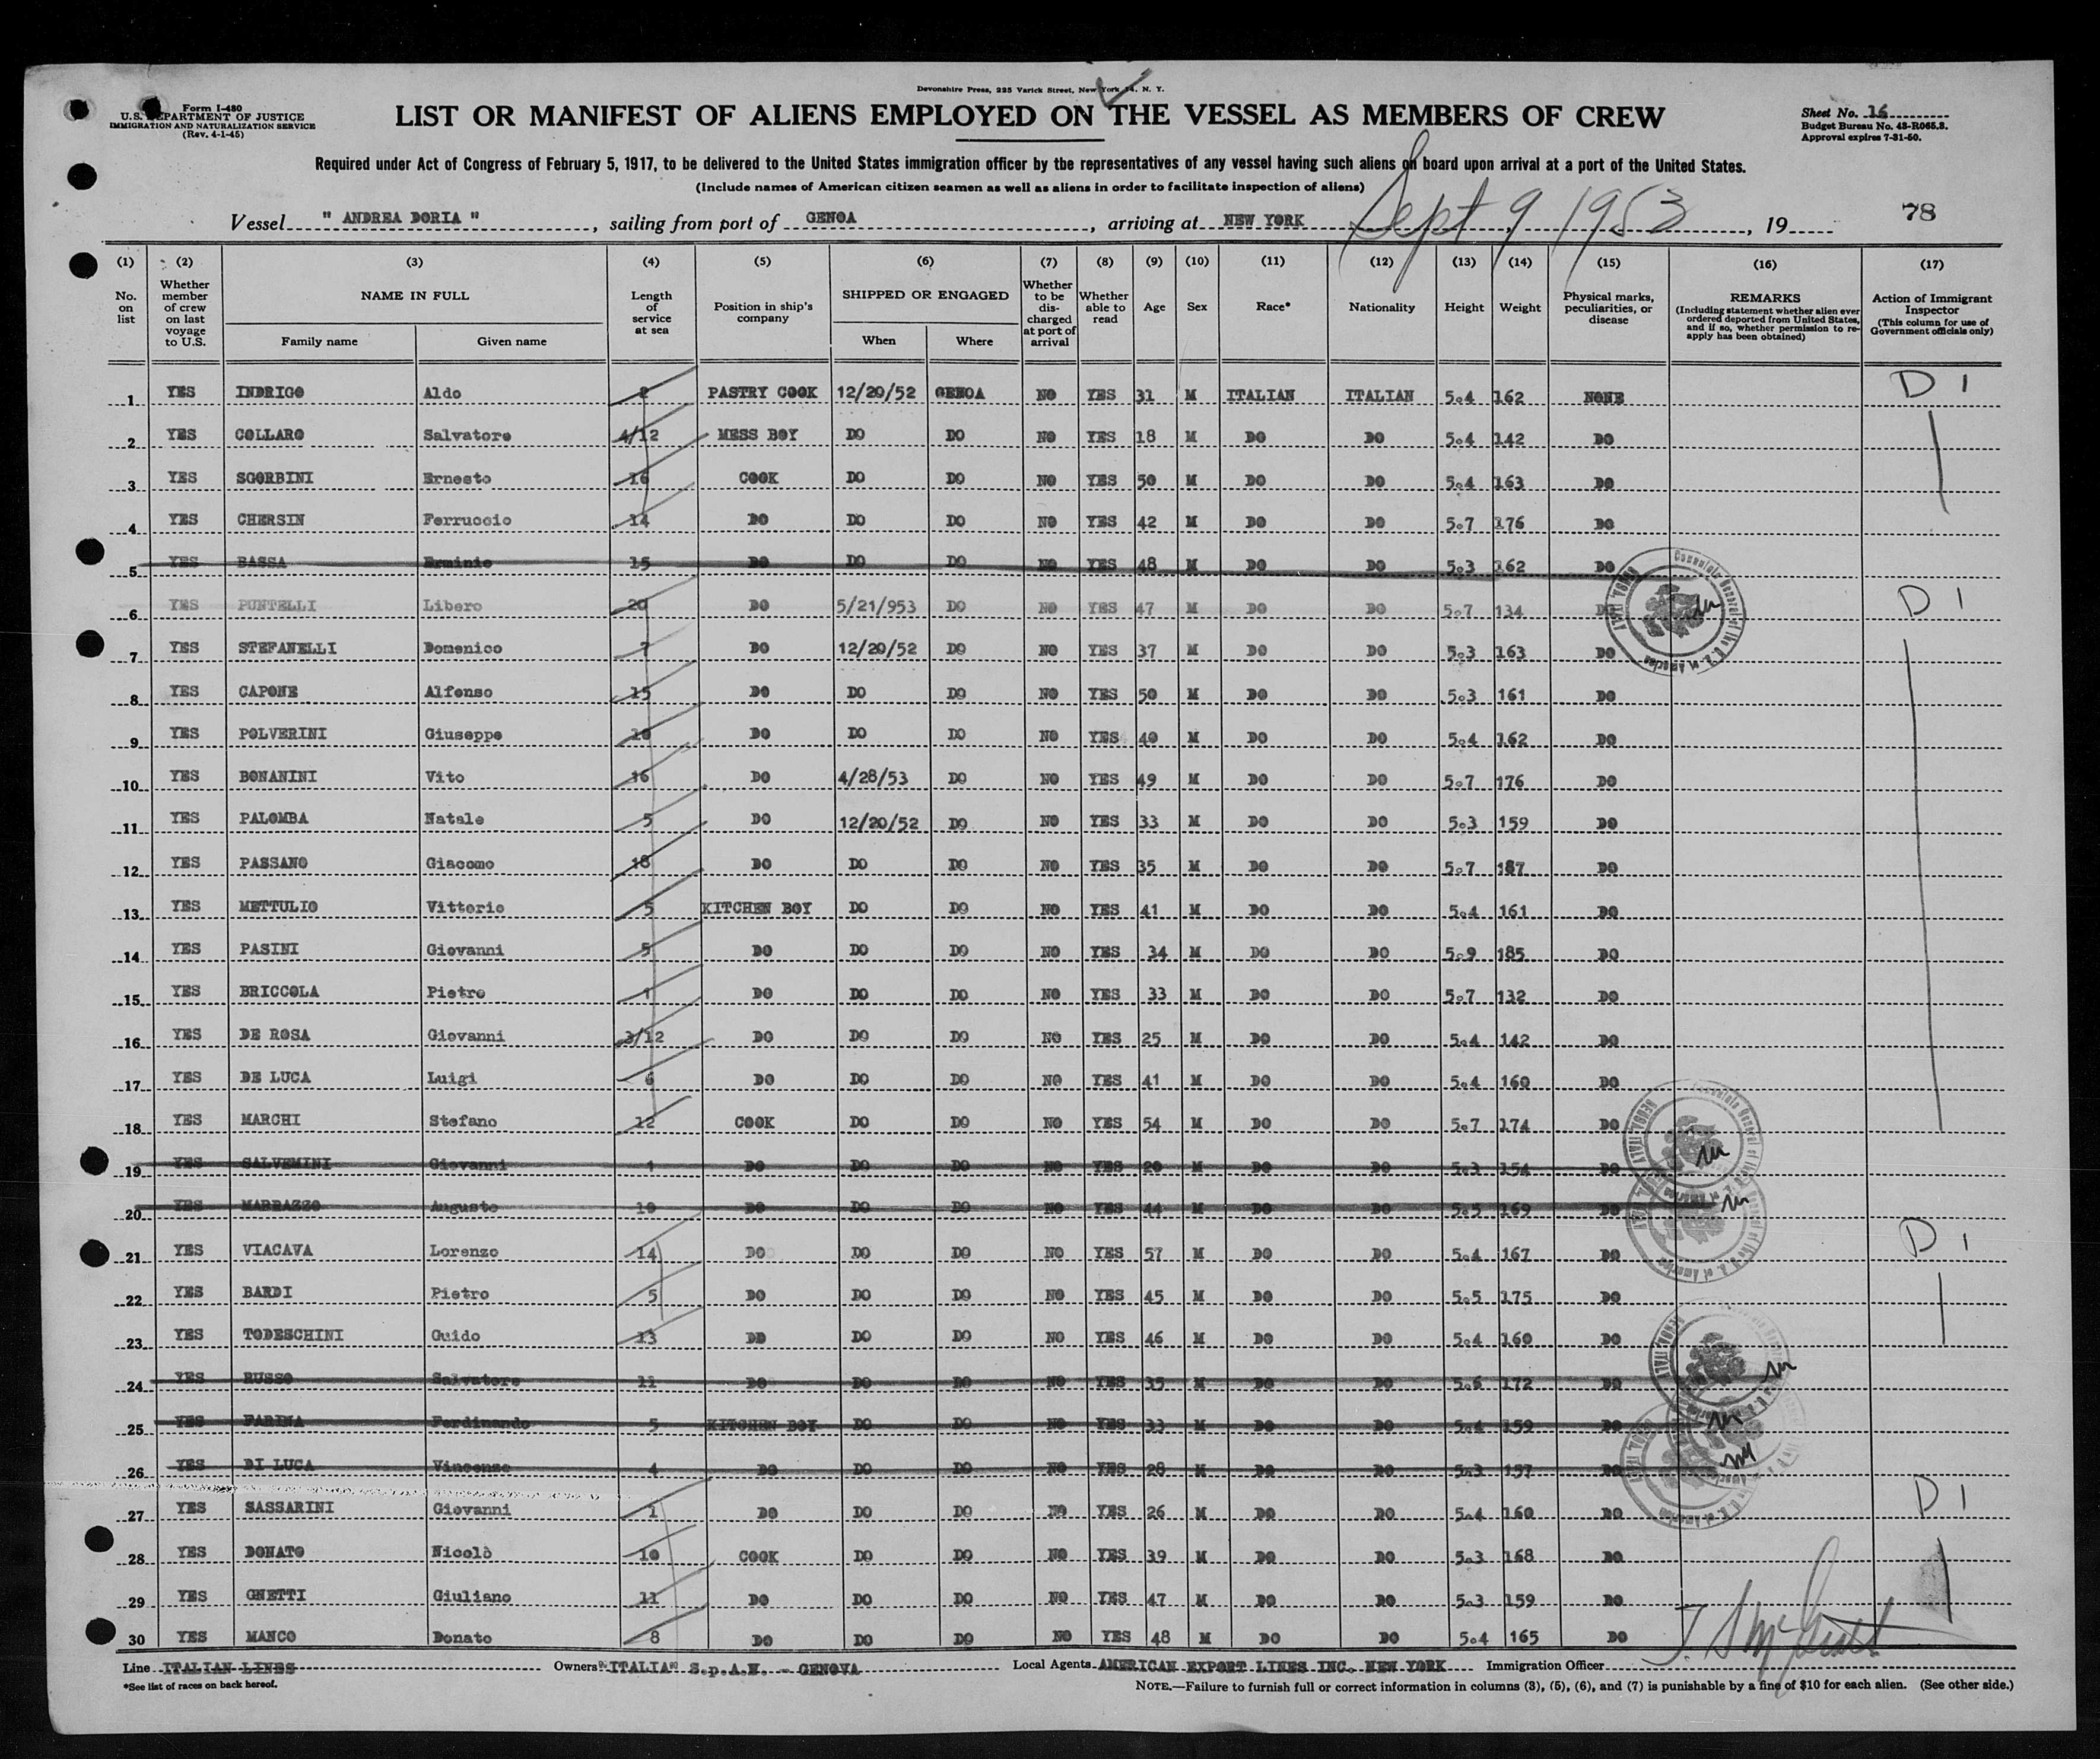 Devonshire Press, 225 Varick Street, New York 14, N. Y.
Form I-480
U.S. DEPARTMENT OF JUSTICE
IMMIGRATION AND NATURALIZATION SERVICE
(Rev. 4-1-45)
LIST OR MANIFEST OF ALIENS EMPLOYED ON THE VESSEL AS MEMBERS OF CREW
Sheet No. 16
Budget Bureau No. 43-R065.3.
Approval expires 7-31-50.
Required under Act of Congress of February 5, 1917, to be delivered to the United States immigration officer by the representatives of any vessel having such aliens on board upon arrival at a port of the United States.
(Include names of American citizen seamen as well as aliens in order to facilitate inspection of aliens)
Vessel " ANDREA DORIA ", sailing from port of GENOA, arriving at NEW YORK Sept 9 1953, 19 78
(1) (2) (3) (4) (5) (6) (7) (8) (9) (10) (11) (12) (13) (14) (15) (16) (17)
No. on list
Whether member of crew on last voyage to U.S.
NAME IN FULL
Family name Given name
Length of service at sea
Position in ship's company
SHIPPED OR ENGAGED
When Where
Whether to be discharged at port of arrival
Whether able to read
Age Sex Race* Nationality Height Weight
Physical marks, peculiarities, or disease
REMARKS
(Including statement whether alien ever ordered deported from United States, and if so, whether permission to re-apply has been obtained)
Action of Immigrant Inspector
(This column for use of Government officials only)
1 YES INDRIGO Aldo 2 PASTRY COOK 12/20/52 GENOA NO YES 31 M ITALIAN ITALIAN 5.4 162 NONE D 1
2 YES COLLARO Salvatore 4/12 MESS BOY DO DO NO YES 18 M DO DO 5.4 142 DO
3 YES SGORBINI Ernesto 16 COOK DO DO NO YES 50 M DO DO 5.4 163 DO
4 YES CHERSIN Ferruccio 14 DO DO DO NO YES 42 M DO DO 5.7 176 DO
5 YES BASSA Erminio 15 DO DO DO NO YES 48 M DO DO 5.3 162 DO
6 YES PUNTELLI Libero 20 DO 5/21/953 DO NO YES 47 M DO DO 5.7 134 DO D 1
7 YES STEFANELLI Domenico 7 DO 12/20/52 DO NO YES 37 M DO DO 5.3 163 DO
8 YES CAPONE Alfonso 15 DO DO DO NO YES 50 M DO DO 5.3 161 DO
9 YES POLVERINI Giuseppe DO DO DO NO YES 40 M DO DO 5.4 162 DO
10 YES BONANINI Vito 16 DO 4/28/53 DO NO YES 49 M DO DO 5.7 176 DO
11 YES PALOMBA Natale 5 DO 12/20/52 DO NO YES 33 M DO DO 5.3 159 DO
12 YES PASSANO Giacomo 18 DO DO DO NO YES 35 M DO DO 5.7 187 DO
13 YES METTULIO Vittorio 5 KITCHEN BOY DO DO NO YES 41 M DO DO 5.4 161 DO
14 YES PASINI Giovanni 5 DO DO DO NO YES 34 M DO DO 5.9 185 DO
15 YES BRICCOLA Pietro 1 DO DO DO NO YES 33 M DO DO 5.7 132 DO
16 YES DE ROSA Giovanni 3/12 DO DO DO NO YES 25 M DO DO 5.4 142 DO
17 YES DE LUCA Luigi 6 DO DO DO NO YES 41 M DO DO 5.4 160 DO
18 YES MARCHI Stefano 12 COOK DO DO NO YES 54 M DO DO 5.7 174 DO
19 YES SALVEMINI Giovanni 1 DO DO DO NO YES 20 M DO DO 5.3 154 DO
20 YES MARRAZZO Augusto 10 DO DO DO NO YES 44 M DO DO 5.5 169 DO
21 YES VIACAVA Lorenzo 14 DO DO DO NO YES 57 M DO DO 5.4 167 DO D 1
22 YES BARDI Pietro 5 DO DO DO NO YES 45 M DO DO 5.5 175 DO
23 YES TODESCHINI Guido 13 DO DO DO NO YES 46 M DO DO 5.4 160 DO
24 YES RUSSO Salvatore 11 DO DO DO NO YES 35 M DO DO 5.6 172 DO
25 YES FARINA Ferdinando 5 KITCHEN BOY DO DO NO YES 33 M DO DO 5.4 159 DO
26 YES DI LUCA Vincenzo 4 DO DO DO NO YES 28 M DO DO 5.3 157 DO
27 YES SASSARINI Giovanni 1 DO DO DO NO YES 26 M DO DO 5.4 160 DO D 1
28 YES DONATO Nicolò 10 COOK DO DO NO YES 39 M DO DO 5.3 168 DO
29 YES GNETTI Giuliano 11 DO DO DO NO YES 47 M DO DO 5.3 159 DO
30 YES MANCO Donato 8 DO DO DO NO YES 48 M DO DO 5.4 165 DO
Line ITALIAN LINES Owners "ITALIA" S.p.A.N. - GENOVA Local Agents AMERICAN EXPORT LINES INC. NEW YORK Immigration Officer
*See list of races on back hereof.
NOTE.—Failure to furnish full or correct information in columns (3), (5), (6), and (7) is punishable by a fine of $10 for each alien. (See other side.)